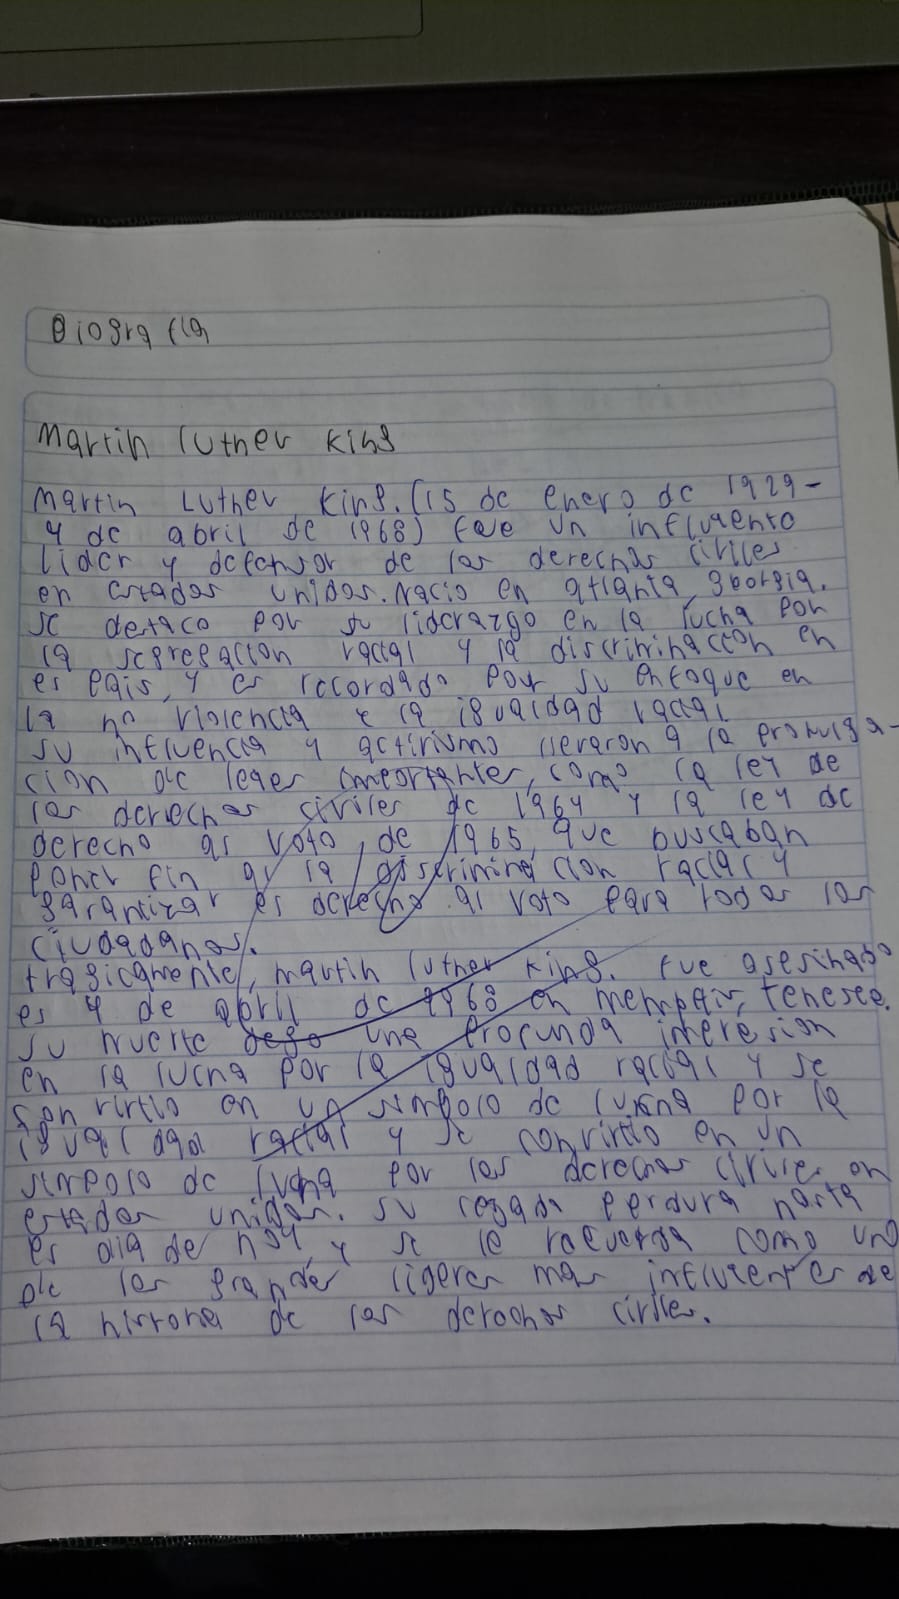 Biografia
Martin luther King
Martin Luther King. (15 de enero de 1929 -
4 de abril de 1968) fue un influyente
lider y defensor de los derechos civiles
en estados unidos. nacio en atlanta, georgia.
se destaco por su liderazgo en la lucha por
la segregacion racial y la discriminacion en
es pais, y es recordado por su enfoque en
la no violencia e la igualdad racial
su influencia y activismo llevaron a la promulga-
cion de leyes importantes, como la ley de
los derechos civiles de 1964 y la ley de
derecho as voto, de 1965, que buscaban
poner fin a la discriminacion racial y
garantizar es derecho al voto para todos los
ciudadanos.
tragicamente, martin luther king. fue asesinado
es 4 de abril de 1968 en memphis, tenesee.
su muerte dejo una profunda
en la lucha por la igualdad racial y se
convirtio en un simbolo de lucha por la
igualdad racial y se convirtio en un
simbolo de lucha por los derechos civiles en
estados unidos. su legado perdura hasta
es dia de hoy, y se le recuerda como uno
de los grandes lideres mas influyentes de
la historia de los derechos civiles.